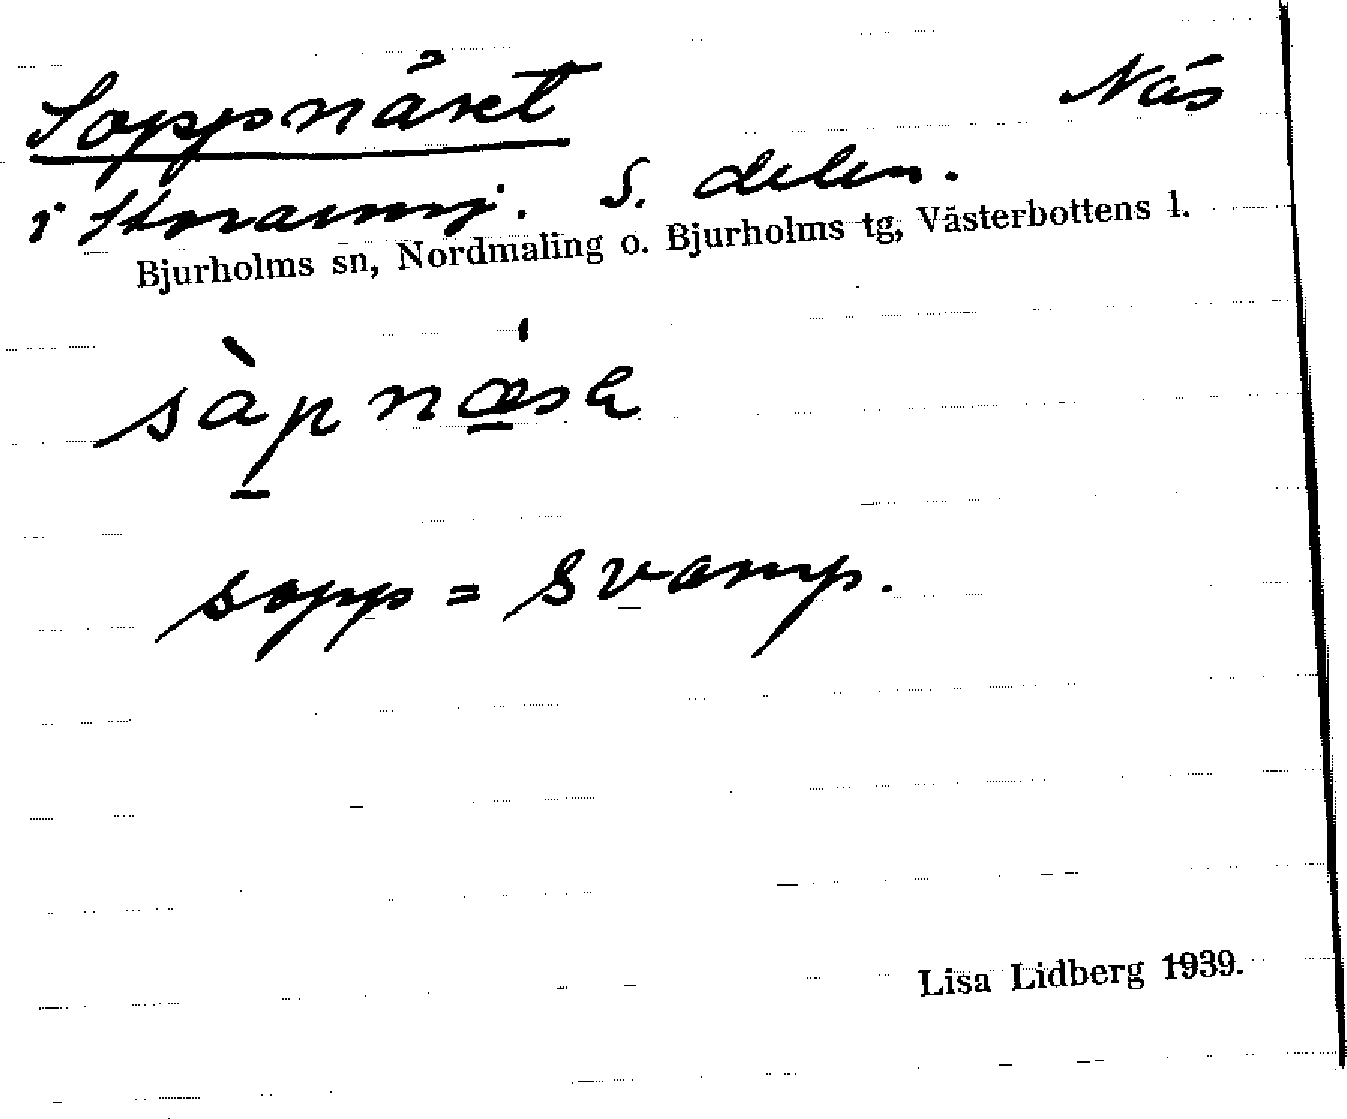 Soppnäset Näs
i Stormyrj. S. delen.
Bjurholms sn, Nordmaling o. Bjurholms tg, Västerbottens l.
sàpnæsɛ
sopp = svamp.
Lisa Lidberg 1939.